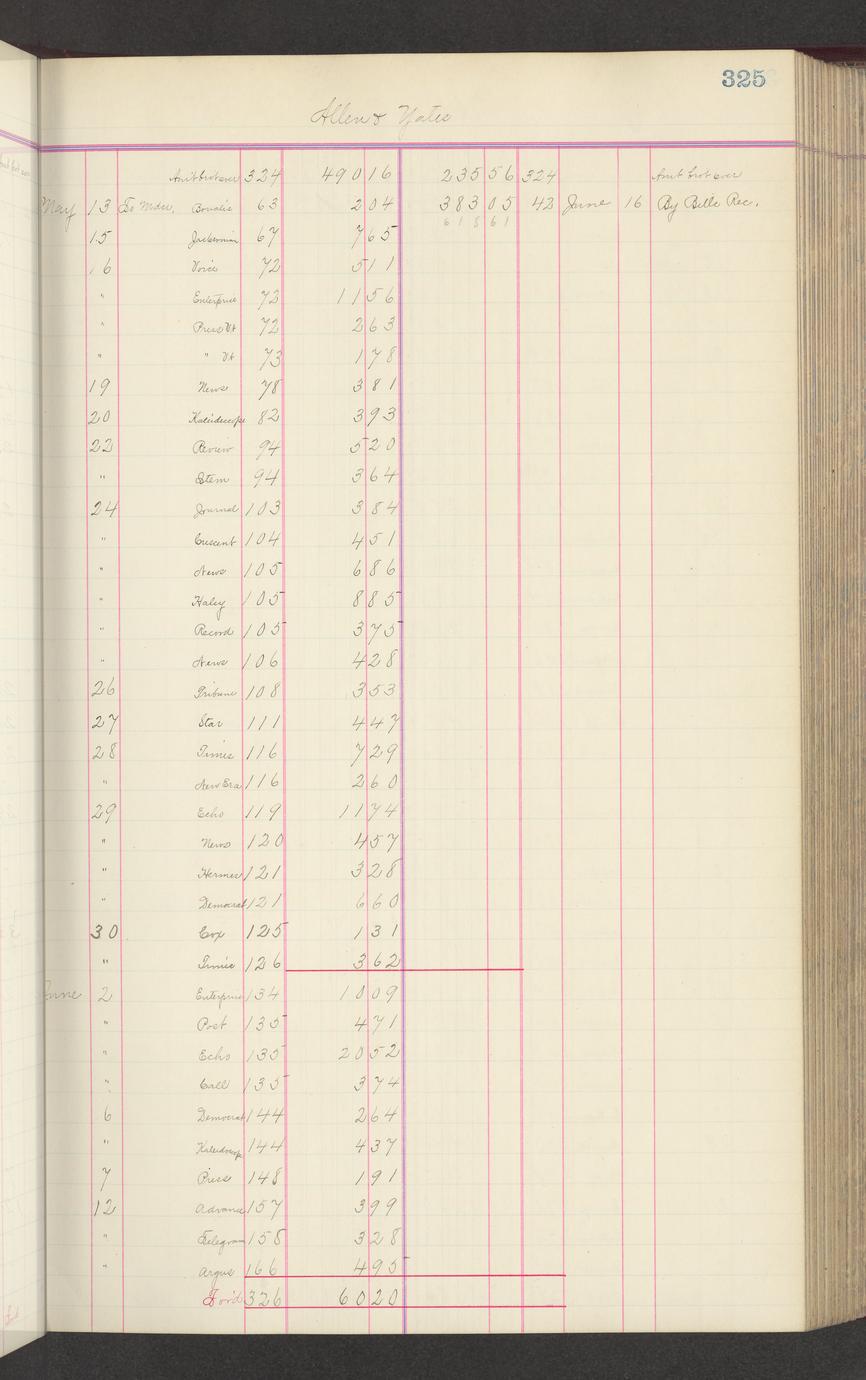 325
Allen & Yates
Am't brot over 324 490 16 235 56 324 Amt brot over
May 13 To Mdse. 63 2 04 383 05 42 June 16 By Bills Rec.
15 67 7 65 618 61
16 Voice 72 5 11
" Enterprise 72 11 56
" Press Vt 72 2 63
" " Vt 73 1 78
19 News 78 3 81
20 Kaleidescope 82 3 93
22 Review 94 5 20
" Stem 94 3 64
24 Journal 103 3 84
" Crescent 104 4 51
" News 105 6 86
" Haley 105 8 85
" Record 105 3 75
" News 106 4 28
26 Tribune 108 3 53
27 Star 111 4 47
28 Times 116 7 29
" New Era 116 2 60
29 Echo 119 11 74
" News 120 4 57
" Hermes 121 3 28
" Democrat 121 6 60
30 Cox 125 1 31
" Times 126 3 62
June 2 Enterprise 134 10 09
" Post 135 4 71
" Echo 135 20 52
" Call 135 3 74
6 Democrat 144 2 64
" Kaleidoscope 144 4 37
7 Press 148 1 91
12 Advance 157 3 99
" Telegram 158 3 28
" Argus 166 4 95
For'd 326 60 20